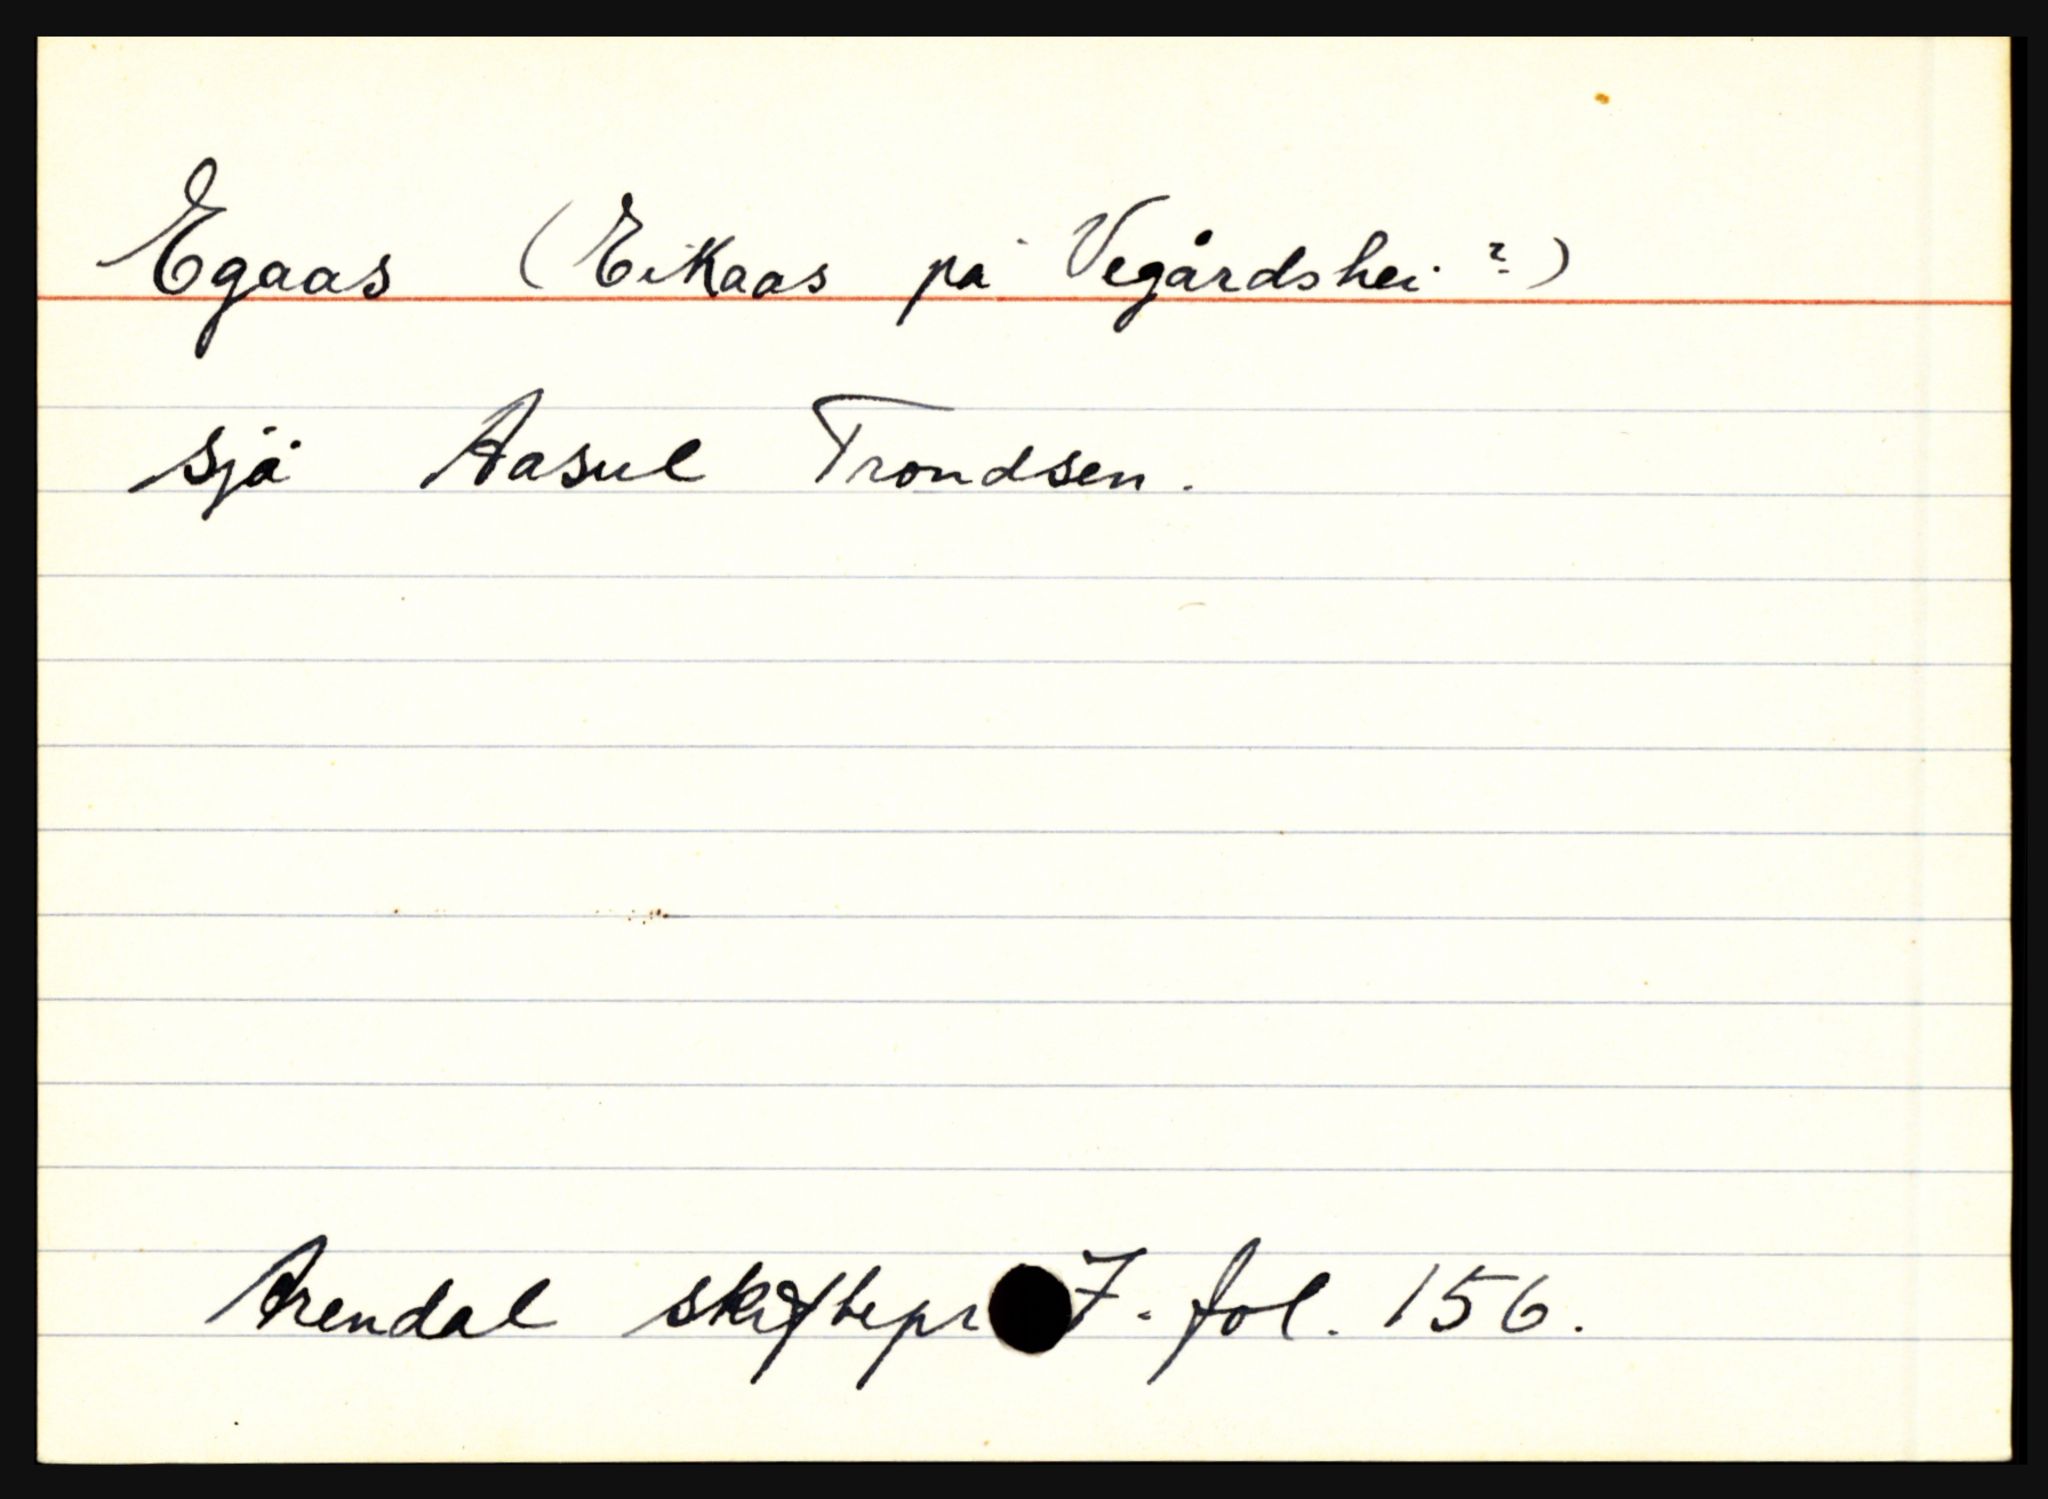 Egaas (Eikaas på Vegårdshei?)
sjå Aasul Trondsen.
Arendal skiftepr 7. fol. 156.